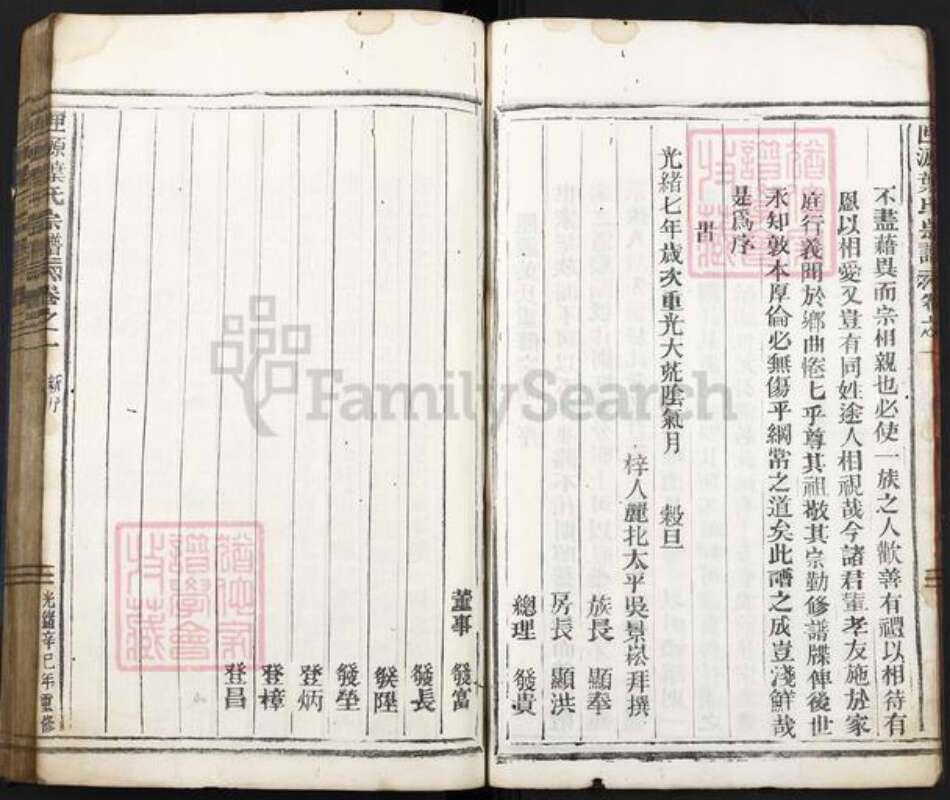 不盡藉異而宗相親也必使一族之人歡善有禮以相待有
恩以相愛又豈有同姓途人相視哉今諸君輩孝友施於家
庭行義聞於鄉曲惓七乎尊其祖敬其宗勤修譜牒俾後世
永知敦本厚倫必無傷乎綱常之道矣此譜之成豈淺鮮哉
是爲序
旹
光緒七年歲次重光大荒陰氣月 穀旦
梓人麗北太平吳景崧拜撰
族長 顯奉
房長 顯洪
總理 發貴
董事 發富
發長
發陞
發瑩
登炳
登樟
登昌
源葉氏宗譜 卷之一 新序
光緒辛巳年重修
FamilySearch